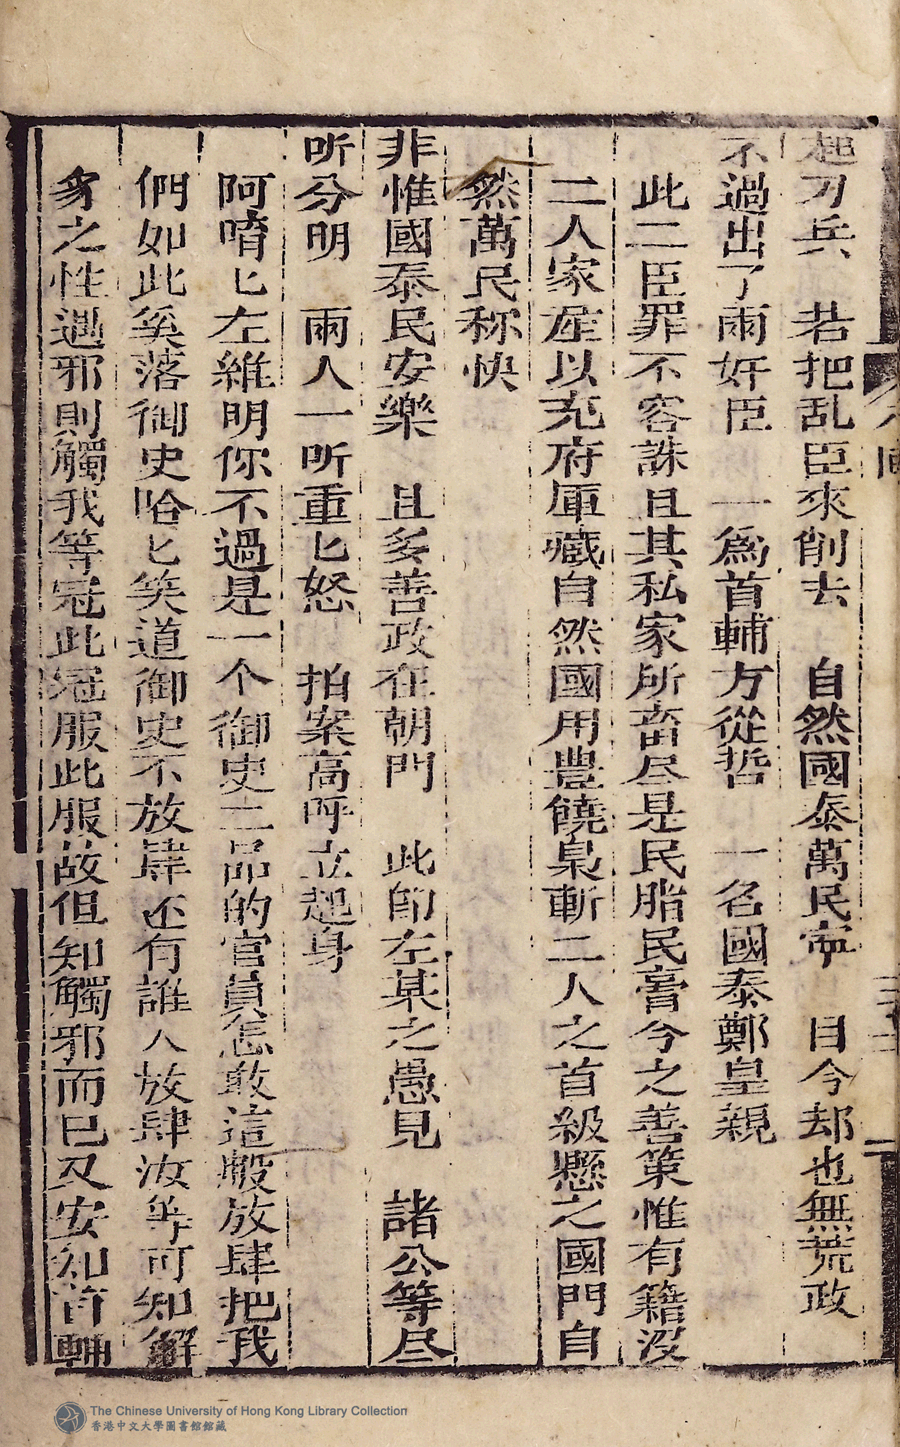 起刀兵　若把乱臣來削去　自然國泰萬民寕　目今却也無荒政
不過出了兩奸臣　一爲首輔方從哲　一名國泰鄭皇親
此二臣罪不容誅且其私家所畜尽是民脂民膏今之善策惟有籍沒
二人家产以充府庫藏自然國用豊饒梟斬二人之首級懸之國門自
然萬民称快
非惟國泰民安樂　且多善政在朝門　此卽左某之愚見　諸公等尽
听分明　兩人一听重匕怒　拍案高呼立起身
阿唷匕左維明你不過是一个御史二品的官員怎敢這般放肆把我
們如此奚落御史哈匕笑道御史不放肆还有誰人放肆汝等可知解
豸之性遇邪則觸我等冠此冠服此服故但知觸邪而已又安知首輔
The Chinese University of Hong Kong Library Collection
香港中文大學圖書館館藏